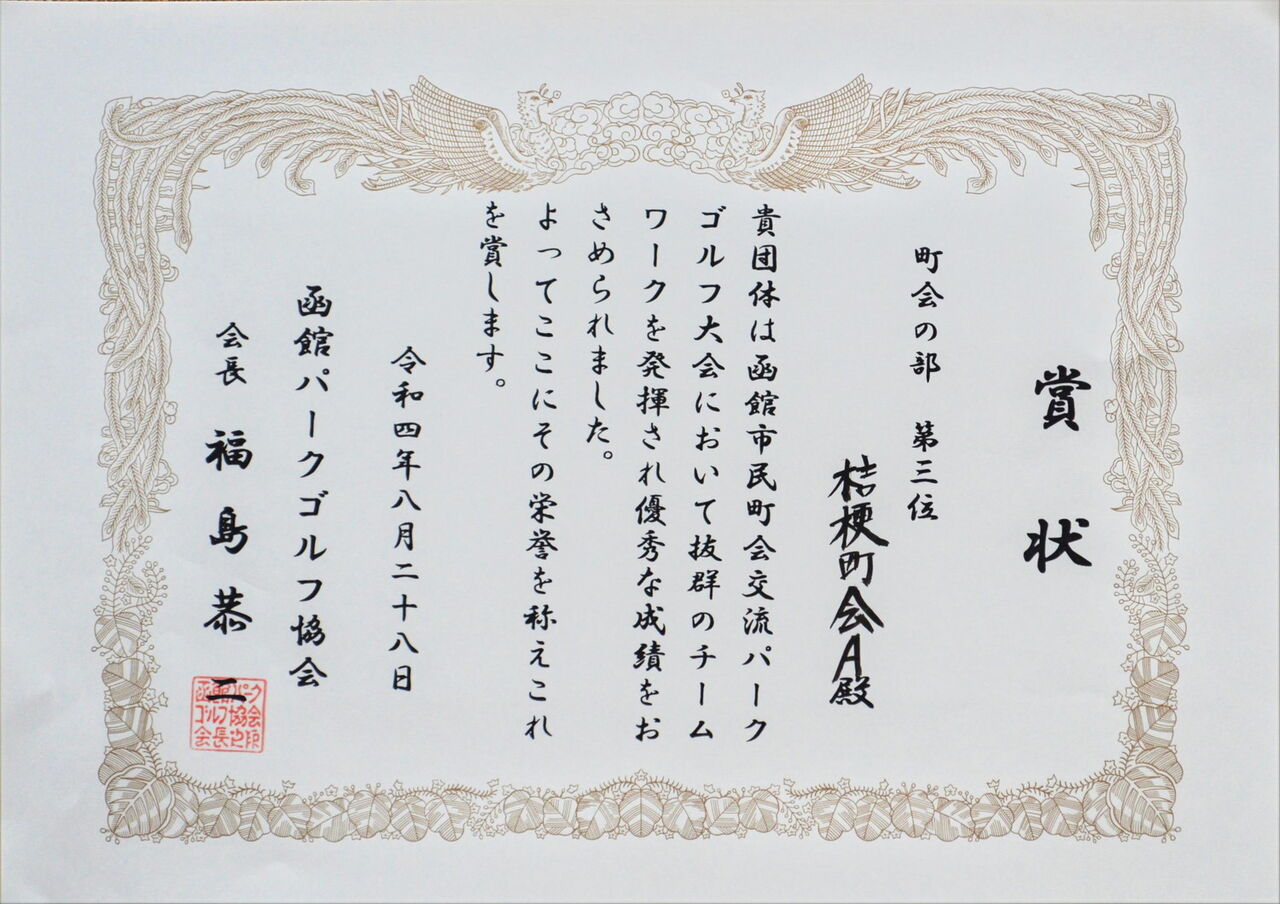 賞状
町会の部 第三位
桔梗町会A殿
貴団体は函館市民町会交流パーク
ゴルフ大会において抜群のチーム
ワークを発揮され優秀な成績をお
さめられました。
よってここにその栄誉を称えこれ
を賞します。
令和四年八月二十八日
函館パークゴルフ協会
会長 福島恭二
函館パーク
ゴルフ協会
会長之印